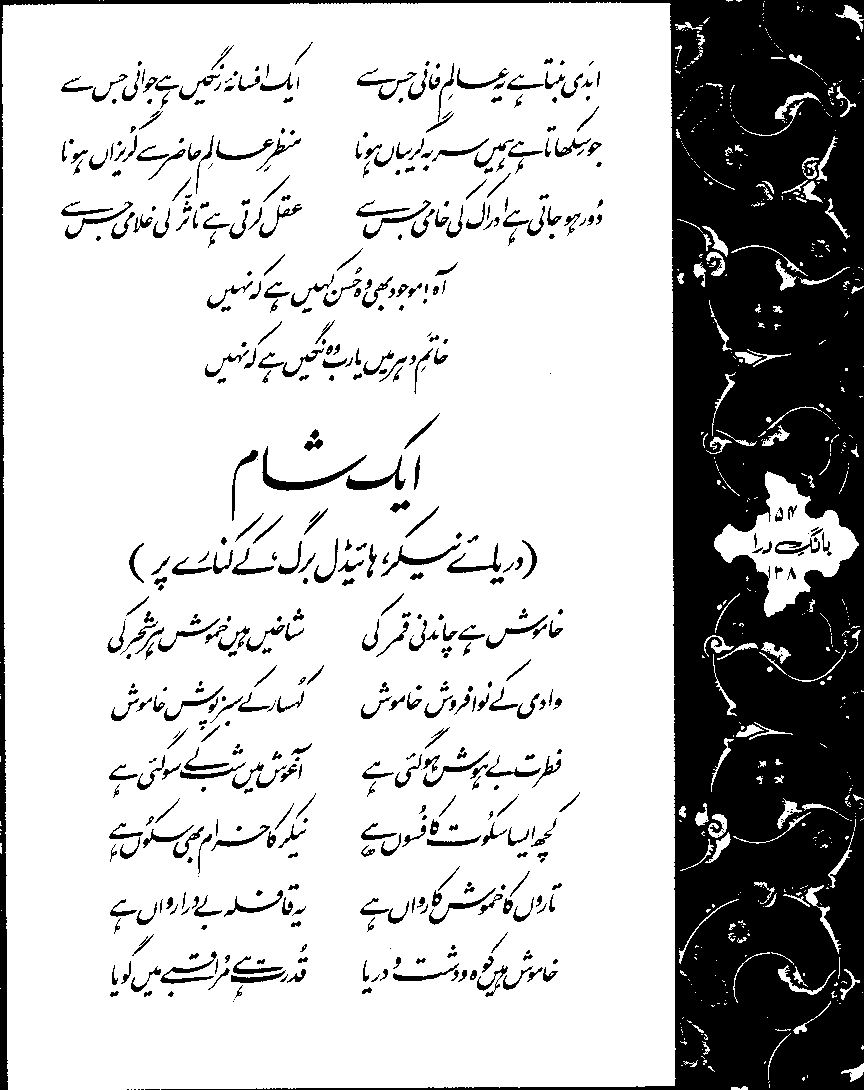 ابدی بنتا ہے یہ عالمِ فانی جس سے ایک افسانۂ رنگیں ہے جوانی جس سے
جو سکھاتا ہے ہمیں سر بہ گریباں ہونا منظرِ عالمِ حاضر سے گریزاں ہونا
دُور ہو جاتی ہے ادراک کی خامی جس سے عقل کرتی ہے تاثّر کی غلامی جس سے
آہ! موجود بھی وہ حُسن کہیں ہے کہ نہیں
خاتَمِ دہر میں یا رب وہ نگیں ہے کہ نہیں
ایک شام
(دریائے نیکر، ہائیڈل برگ، کے کنارے پر)
خاموش ہے چاندنی قمر کی شاخیں ہیں خموش ہر شجر کی
وادی کے نوا فروش خاموش کُہسار کے سبز پوش خاموش
فطرت بے ہوش ہو گئی ہے آغوش میں شب کے سو گئی ہے
کچھ ایسا سکُوت کا فسُوں ہے نیکر کا خرام بھی سکُوں ہے
تاروں کا خموش کارواں ہے یہ قافلہ بے درا رواں ہے
خاموش ہیں کوہ و دشت و دریا قُدرت ہے مُراقبے میں گویا
۱۵۴
بانگِ درا
۱۳۸